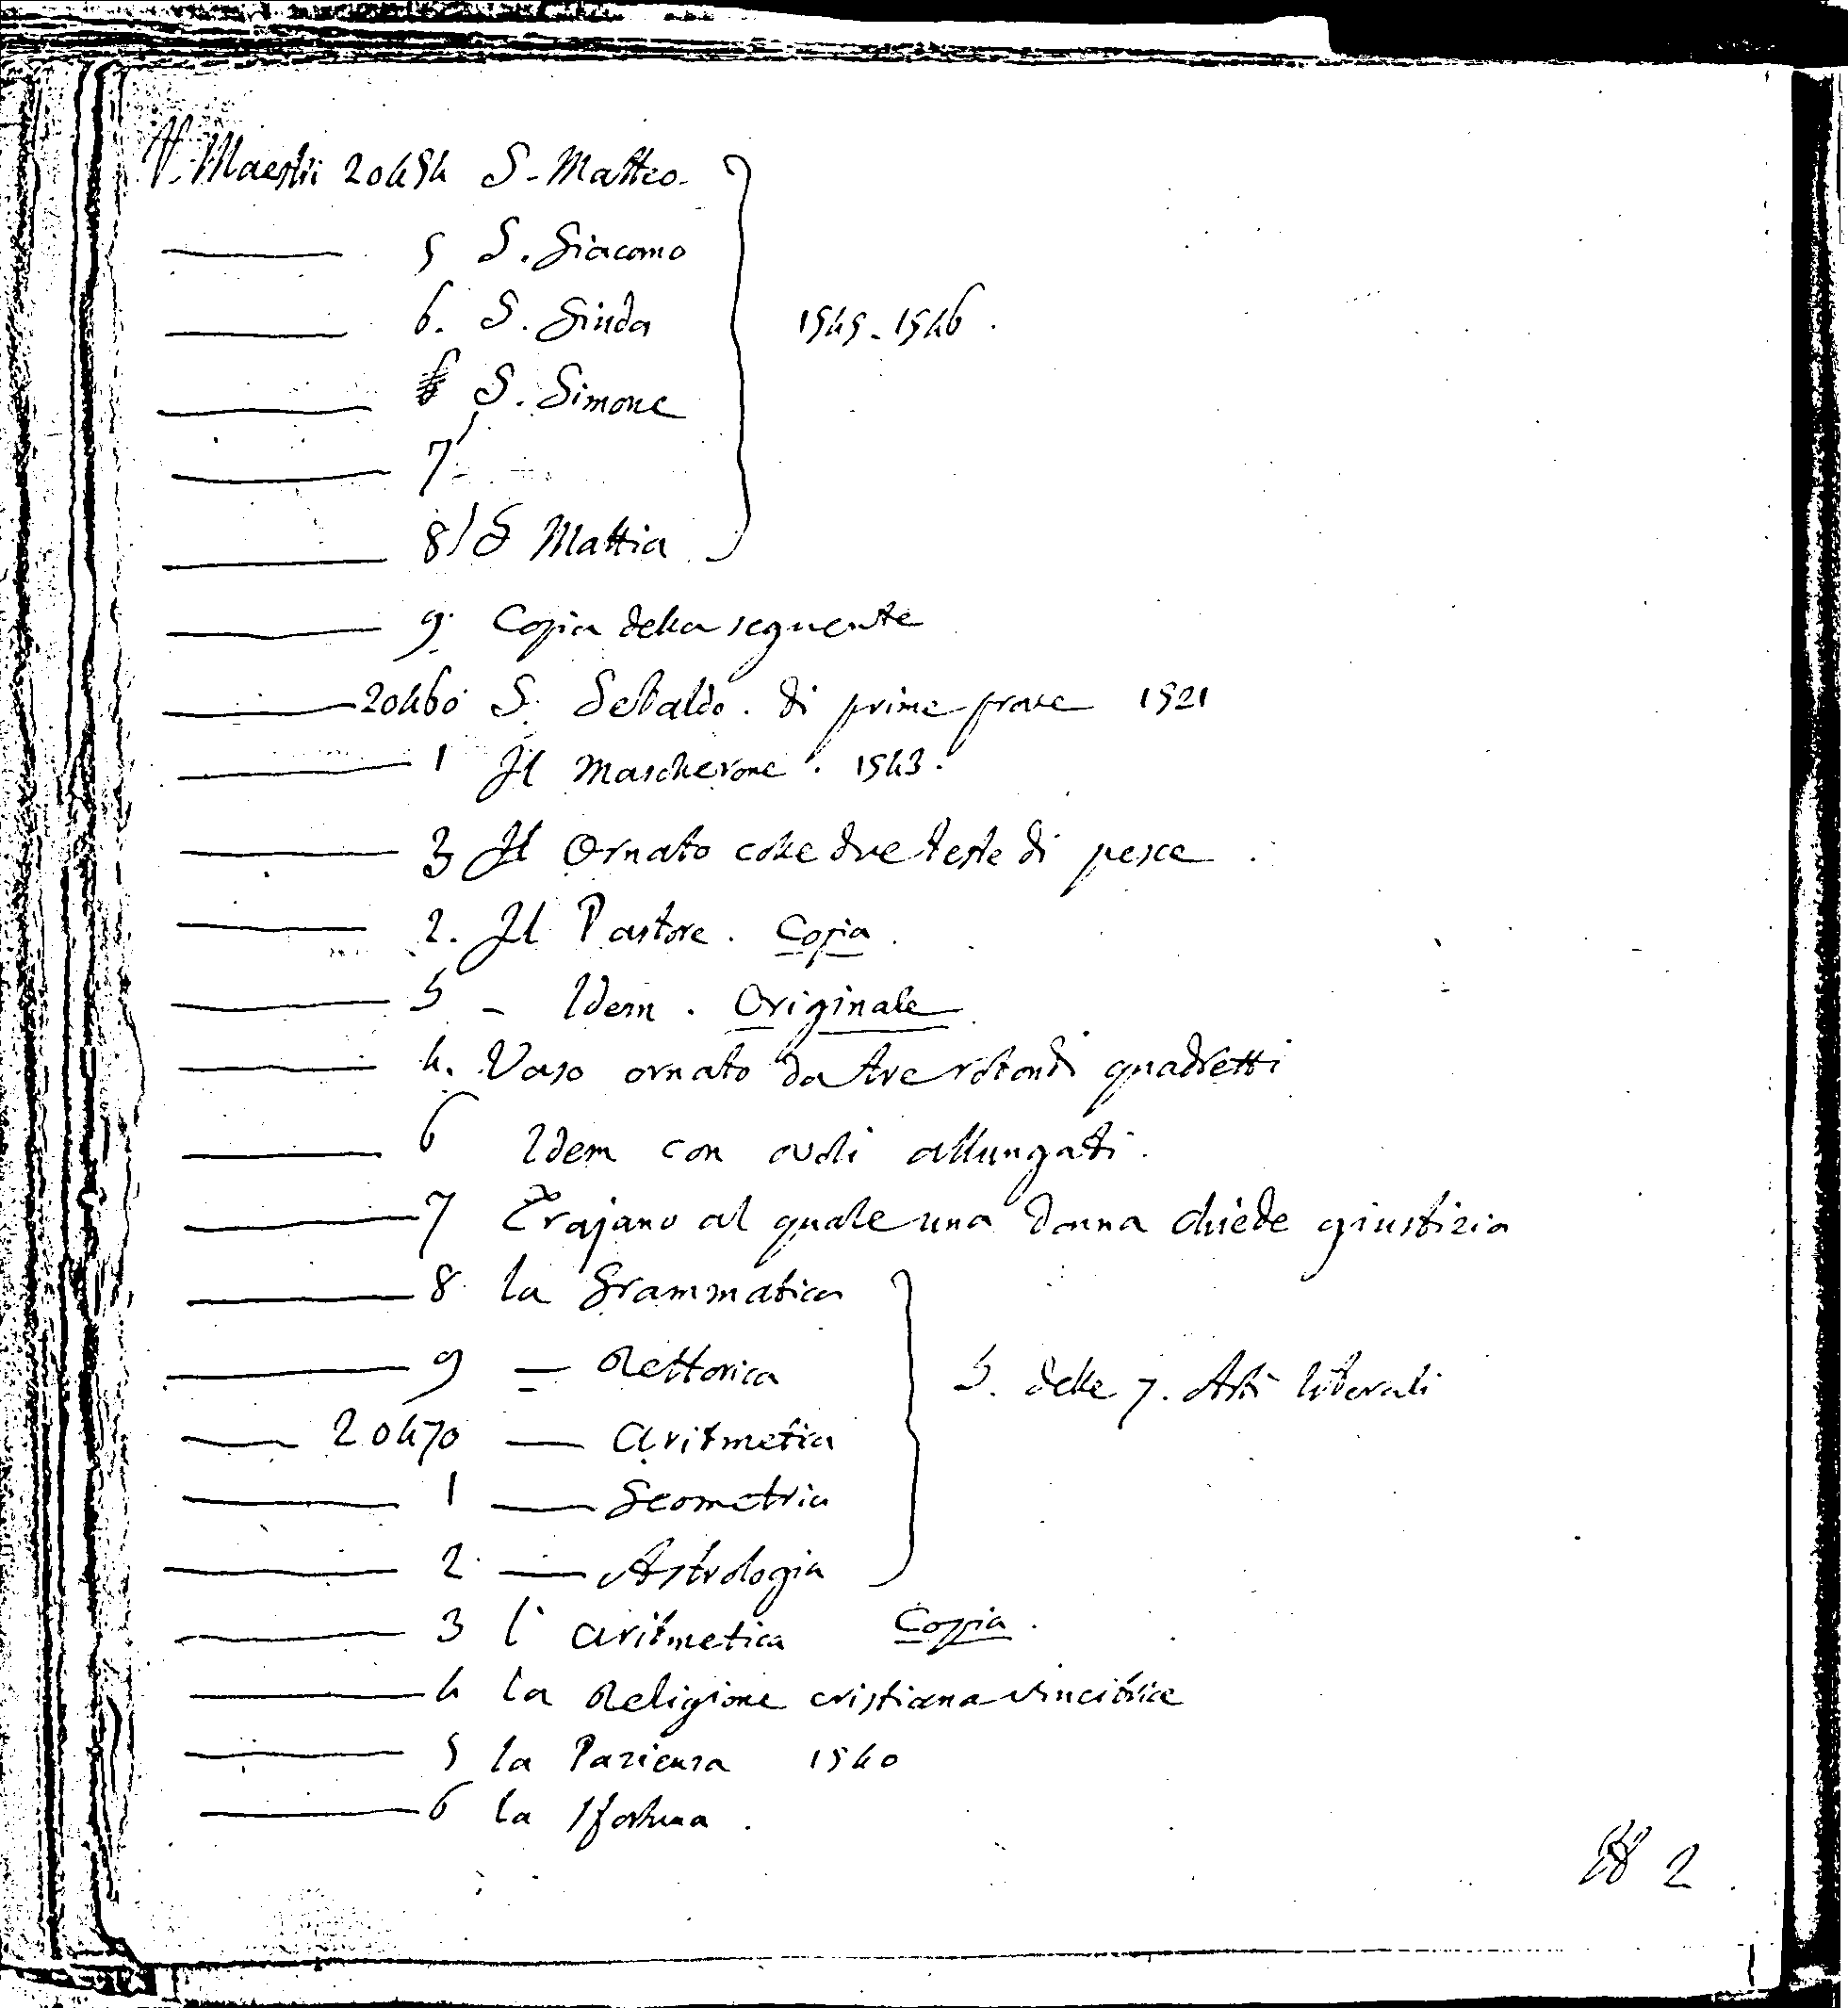 V. Maestri 20454 S. Matteo.
5 S. Giacomo
6. S. Giuda 1545-1546.
S. Simone
7
8 S Mattia
9. Copia della seguente
20460 S. Sebaldo. di prime prove 1521
1 Il Mascherone. 1543.
3 Il Ornato colle due teste di pesce.
2. Il Pastore. Copia.
5 - Idem. Originale
4. Vaso ornato da tre rotondi quadretti
6 Idem con ovoli allungati.
7 Trajano al quale una donna chiede giustizia
8 la Grammatica
9 — Rettorica 5. delle 7. Arti liberali
20470 — Aritmetica
1 — Geometria
2 — Astrologia
3 l'aritmetica Copia.
4 la Religione cristiana vincitrice
5 la Pazienza 1540
6 la Sfortuna.
2